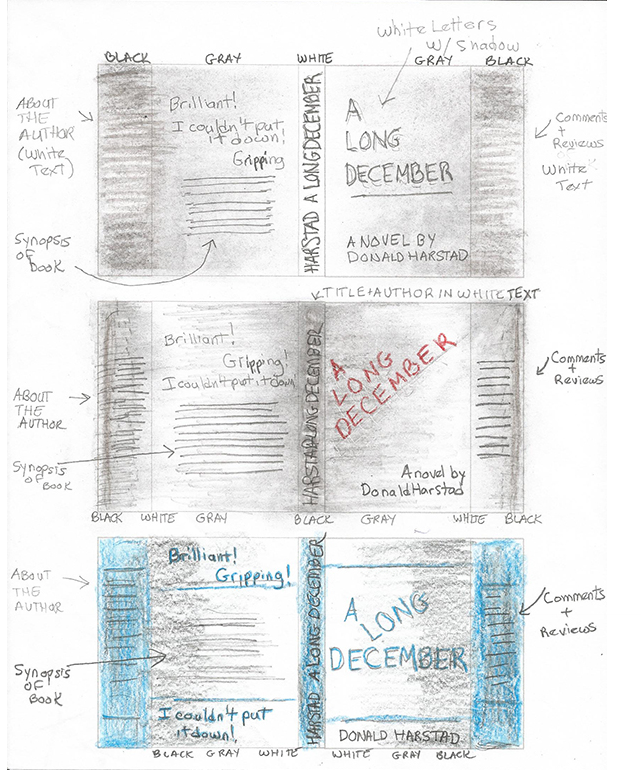 BLACK GRAY WHITE GRAY BLACK
White Letters
W/ Shadow
ABOUT
THE
AUTHOR
(White
Text)
Brilliant!
I couldn't put
it down!
Gripping
Synopsis
of
Book
HARSTAD A LONG DECEMBER
A
LONG
DECEMBER
A NOVEL BY
DONALD HARSTAD
Comments
+
Reviews
White
Text
TITLE + AUTHOR IN WHITE TEXT
ABOUT
THE
AUTHOR
Brilliant!
Gripping!
I couldn't put it down
Synopsis
of Book
HARSTAD A LONG DECEMBER
A
LONG
DECEMBER
A novel by
Donald Harstad
Comments
+
Reviews
BLACK WHITE GRAY BLACK GRAY WHITE BLACK
ABOUT
THE
AUTHOR
Brilliant!
Gripping!
Synopsis
of
Book
I couldn't put
it down!
HARSTAD A LONG DECEMBER
A
LONG
DECEMBER
DONALD HARSTAD
Comments
+
Reviews
BLACK GRAY WHITE WHITE GRAY BLACK